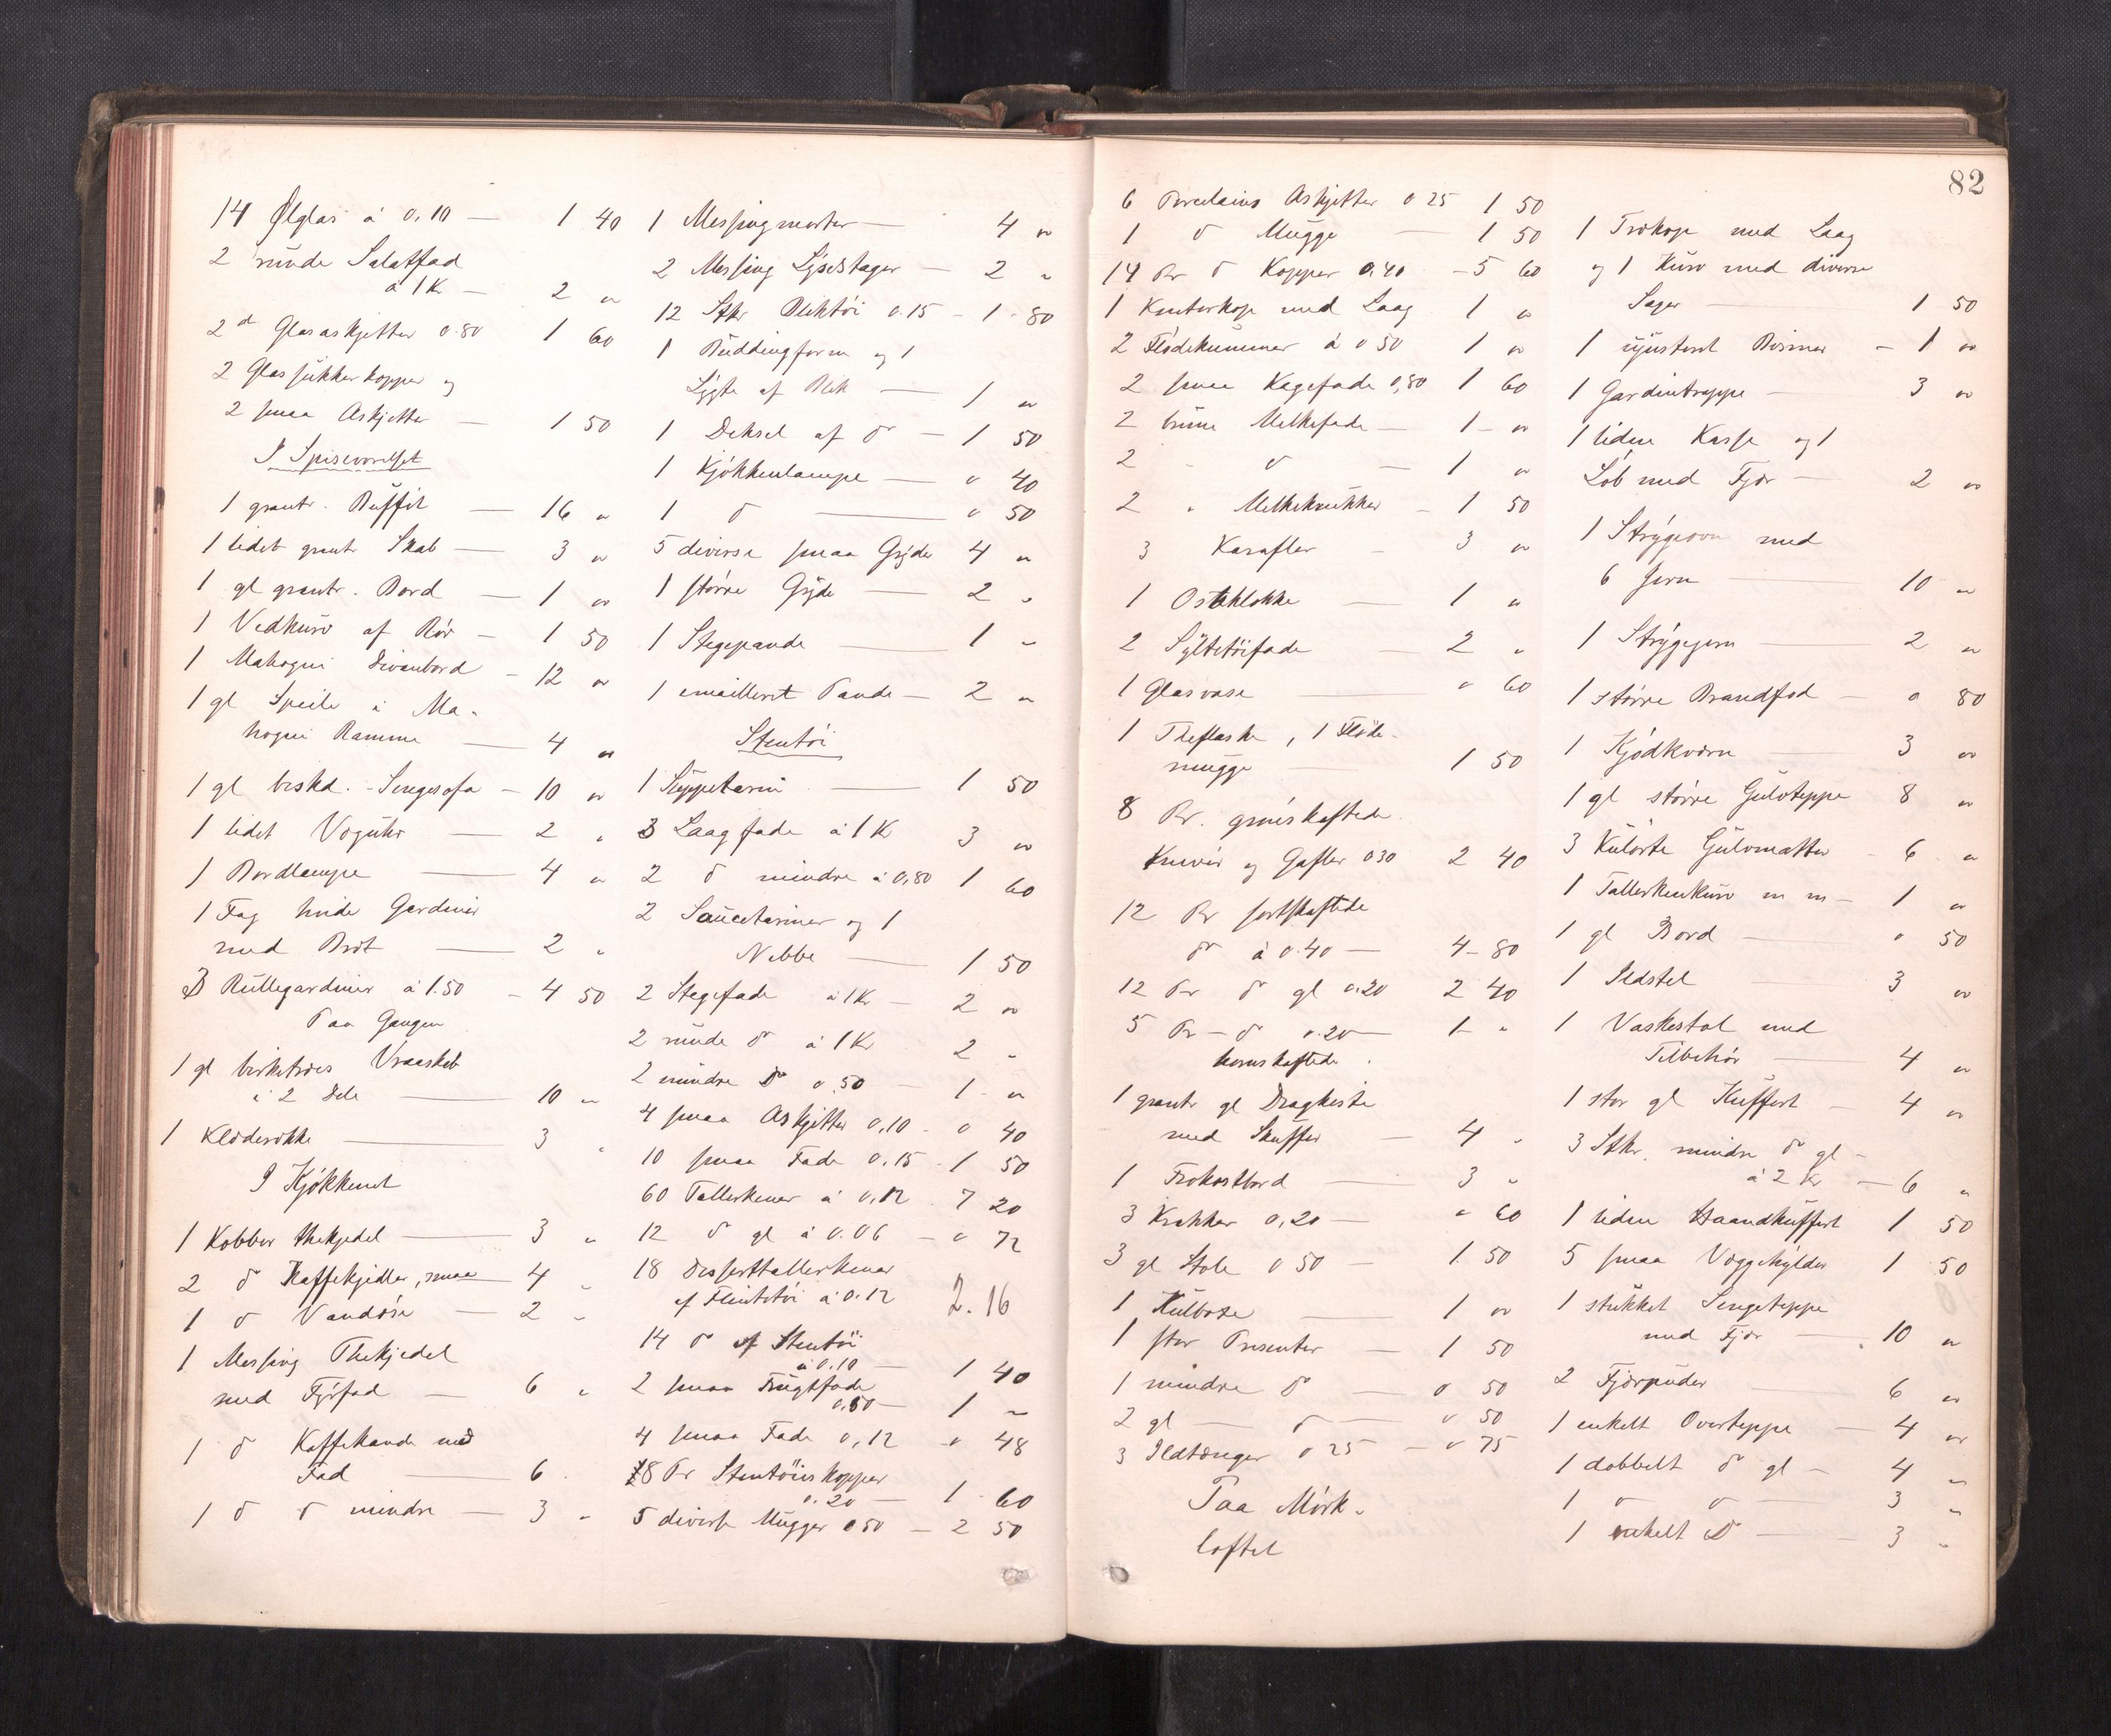 14 Ølglas à 0.10 — 1 40
2 runde Salatfad
à 1 Kr — 2 "
2 do Glasaskjetter 0.80 1 60
2 Glassukkerkopper og
2 smaa Askjetter — 1 50
I Spiseværelset
1 grantr. Buffet — 16 "
1 lidet grantr Skab — 3 "
1 gl grantr. Bord — 1 "
1 Vedkurv af Rør — 1 50
1 Mahogni Divanbord — 12 "
1 gl Speile i Ma-
hogni Ramme — 4 "
1 gl beskd. Sengesofa — 10 "
1 lidet Væguhr — 2 "
1 Bordlampe — 4 "
1 Fag hvide Gardiner
med Bræt — 2 "
3 Rullegardiner à 1.50 — 4 50
Paa Gangen
1 gl birketræes Vraaskab
i 2 Dele — 10 "
1 Klæderække — 3 "
I Kjøkkenet
1 Kobber thekjedel — 3 "
2 do Kaffekjedler, smaa — 4 "
1 do Vandøse — 2 "
1 Messing Thekjedel
med Fyrfad — 6 "
1 do Kaffekande med
Fad — 6 "
1 do do mindre — 3 "
1 Messingmorter — 4 "
2 Messing Lysestager — 2 "
12 Stkr Bliktøi 0.15 — 1 80
1 Buddingform og 1
Lygte af Blik — 1 "
1 Deksel af do — 1 50
1 Kjøkkenlampe — " 40
1 do — " 50
5 diverse smaa Gryder 4 "
1 større Gryde — 2 "
1 Stegepande — 1 "
1 emailleret Pande — 2 "
Stentøi
1 Suppeterrin — 1 50
3 Laagfade à 1 Kr 3 "
2 do mindre à 0,80 1 60
2 Sauceterriner og 1
Nebbe — 1 50
2 Stegefade à 1 Kr — 2 "
2 runde do à 1 Kr 2 "
2 mindre do 0.50 — 1 "
4 smaa Askjetter 0,10 — " 40
10 smaa Fade 0.15 — 1 50
60 Tallerkener à 0,12 7 20
12 do gl à 0.06 — " 72
18 Desserttallerkener
af Flintetøi à 0.12 2.16
14 do af Stentøi
à 0.10 — 1 40
2 smaa Frugtfade
0.50 — 1 "
4 smaa Fade 0,12 " 48
8 Pr Stentøiskopper
0.20 — 1 60
5 diverse Mugger 0 50 — 2 50
82
6 Porcelains Askjetter 0 25 1 50
1 do Mugge — 1 50
14 Pr do Kopper 0.40 — 5 60
1 Kontorkop med Laag 1 "
2 Flødekummer à 0 50 1 "
2 smaa Kagefade 0,80 1 60
2 brune Melkefade — 1 "
2 do — 1 "
2 " Melkekrukker — 1 50
3 Karafler — 3 "
1 Osteklokke — 1 "
2 Syltetøifade — 2 "
1 Glasvase — " 60
1 Theflaske, 1 Fløde-
mugge — 1 50
8 Pr. graaskaftede
Kniver og Gafler 0 30 2 40
12 Pr sortskaftede
do à 0.40 — 4 80
12 Pr do gl 0.20 2 40
5 Pr — do 0.20 — 1 "
hornskaftede
1 grantr gl Dragkiste
med Skuffer — 4 "
1 Frokostbord — 3 "
3 Krakker 0,20 — " 60
3 gl Stole 0 50 — 1 50
1 Kulboxe — 1 "
1 stor Presenter — 1 50
1 mindre do — 0 50
2 gl — do — " 50
3 Ildtænger 0 25 — " 75
Paa Mørk-
loftet
1 med Laag
og 1 Kurv med diverse
Sager — 1 50
1 ujusteret Bismer — 1 "
1 Gardintrappe — 3 "
1 liden Kasse og 1
Løb med Fjær — 2 "
1 Strygeovn med
6 Jern — 10 "
1 Strygejern — 2 "
1 større Brandfad — 0 80
1 Kjødkværn — 3 "
1 gl større Gulvteppe 8 "
3 Kulørte Gulvmatter — 6 "
1 Tallerkenkurv m m — 1 "
1 gl Bord — " 50
1 Ildstel 3 "
1 Vaskestol med
Tilbehør — 4 "
1 stor gl Kuffert — 4 "
3 Stkr. mindre do gl —
à 2 Kr — 6 "
1 liden Haandkuffert 1 50
5 smaa Væggehylder 1 50
1 stukket Sengeteppe
med Fjær — 10 "
2 Fjærputer — 6 "
1 enkelt Overteppe — 4 "
1 dobbelt do gl — 4 "
1 do do 3 "
1 enkelt do — 3 "